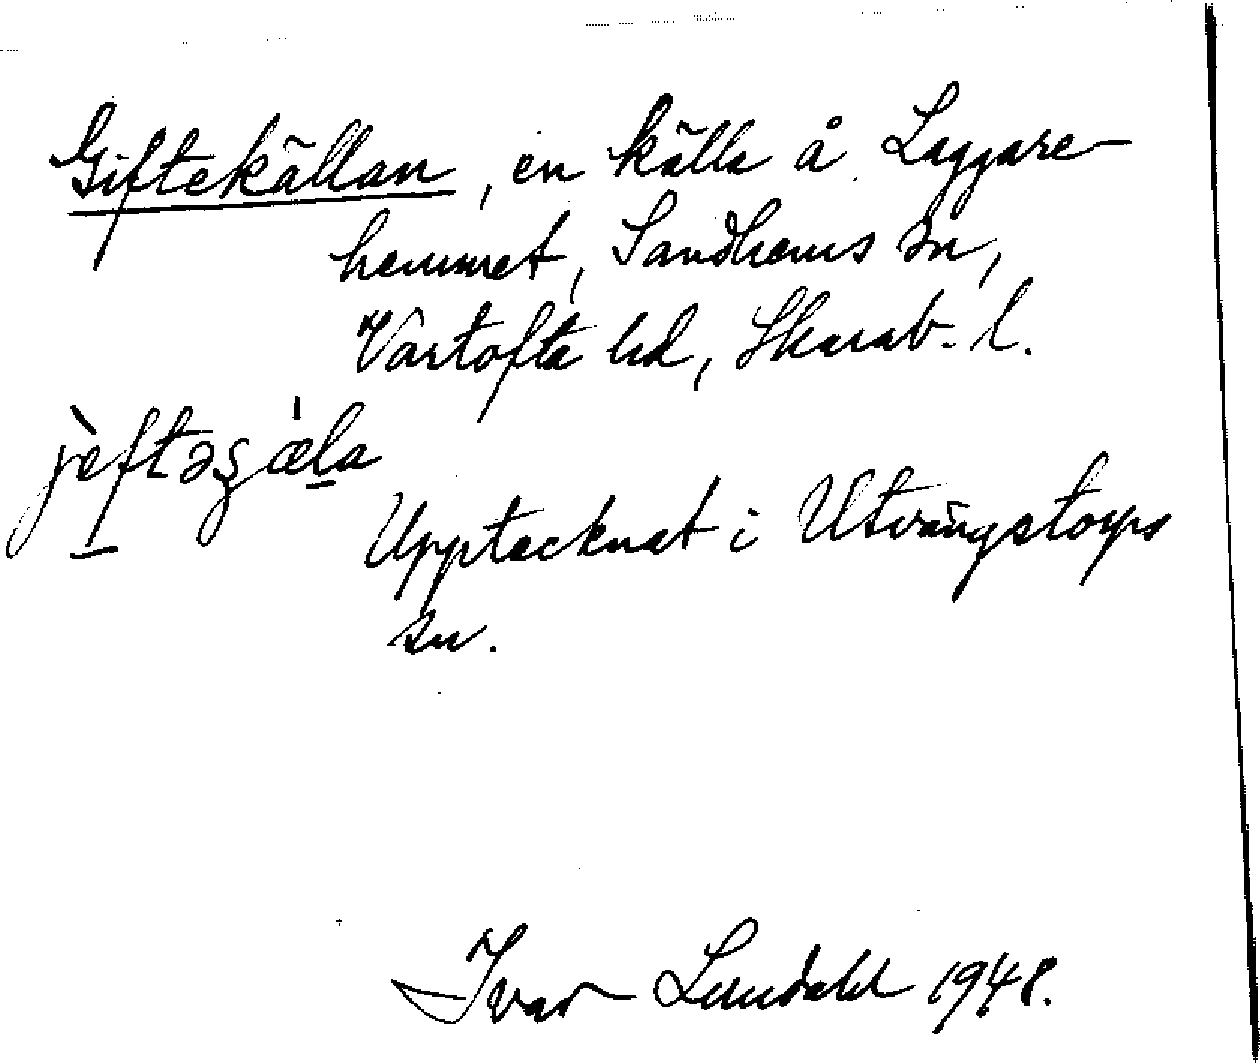 Giftekällan, en källa å Laggare-
hemmet, Sandhems sn,
Vartofta hd, Skarab. l.
jèftəȿæ̀la
Upptecknat i Utvängstorps
sn.
Ivar Lundahl 1948.